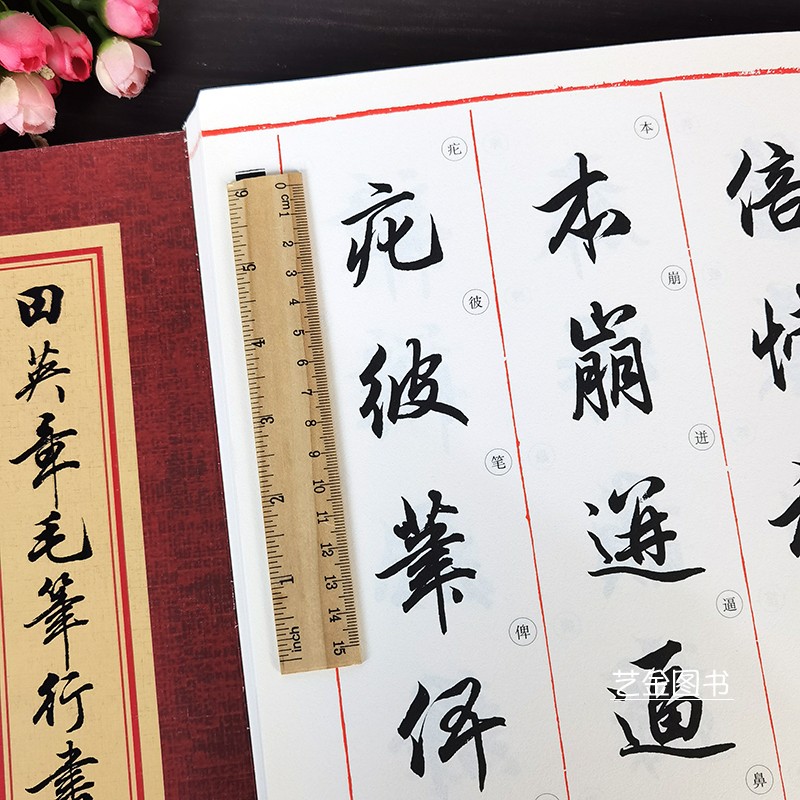 田英章毛筆行書
倍
本
本
崩
崩
迸
迸
逼
逼
鼻
疕
疕
彼
彼
笔
筆
俾
俾
0 cm 1 2 3 4 5 6 7 8 9 10 11 12 13 14 15
inch 1 2 3 4 5 6
艺金图书